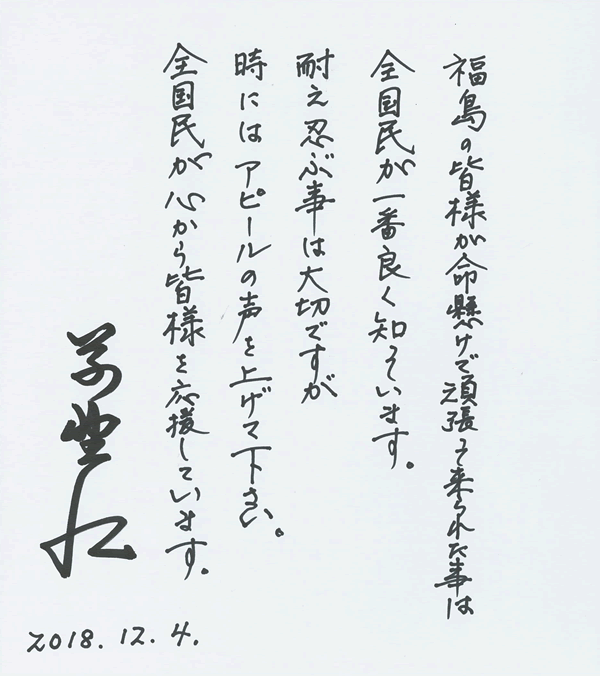 福島の皆様が命懸けで頑張って来られた事は
全国民が一番良く知っています。
耐え忍ぶ事は大切ですが
時にはアピールの声を上げて下さい。
全国民が心から皆様を応援しています。
2018.12.4.